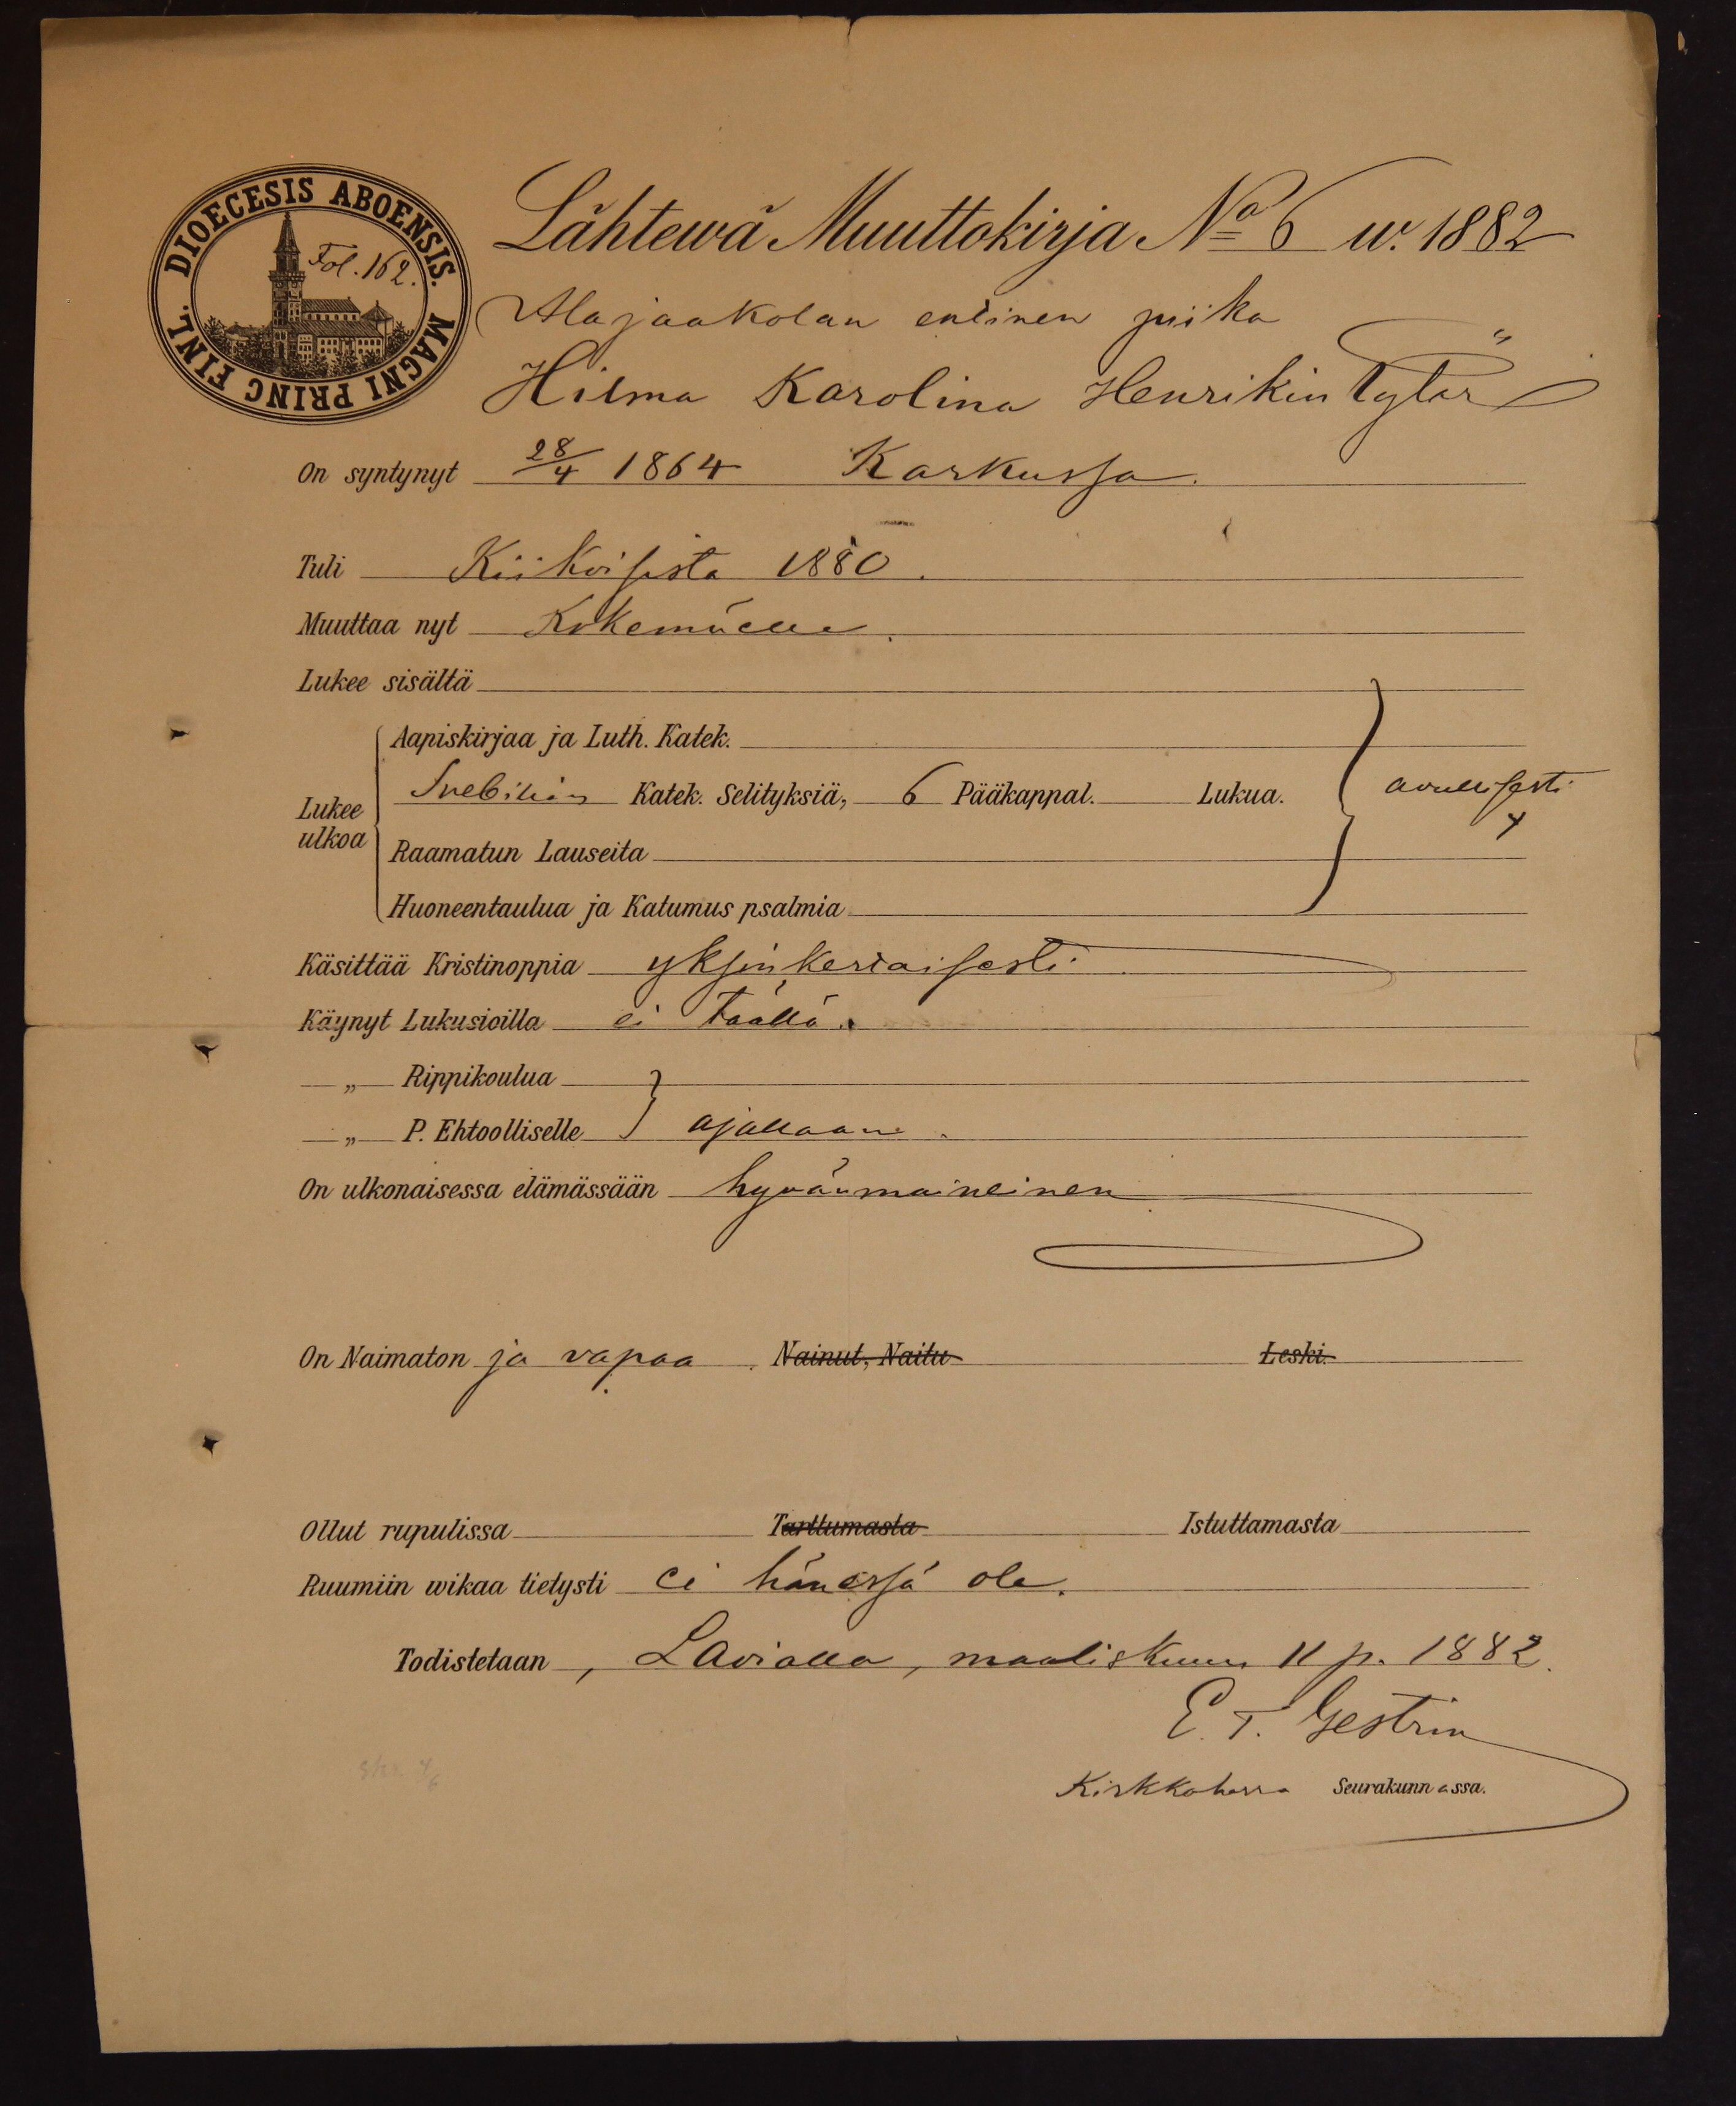 DIOECESIS ABOENSIS. MAGNI PRINC FINL.
Fol. 162.
Lähtewä Muuttokirja No 6 w. 1882
Alajaakolan entinen piika
Hilma Karolina Henrikintytär
On syntynyt 28/4 1864 Karkussa.
Tuli Kiikoisista 1880.
Muuttaa nyt Kokemäelle.
Lukee sisältä
Aapiskirjaa ja Luth. Katek.
Lukee ulkoa Svebilius Katek. Selityksiä, 6 Pääkappal. Lukua. avullisesti
Raamatun Lauseita
Huoneentaulua ja Katumus psalmia
Käsittää Kristinoppia yksinkertaisesti
Käynyt Lukusioilla ei täällä.
„ Rippikoulua
„ P. Ehtoolliselle ajallaan.
On ulkonaisessa elämässään hyvänmaineinen
On Naimaton ja vapaa. Nainut, Naitu Leski.
Ollut rupulissa Tarttumasta Istuttamasta
Ruumiin wikaa tietysti ei hänessä ole.
Todistetaan, Lavialla, maaliskuun 11 p. 1882.
E. T. Gestrin
Kirkkoherra Seurakunnassa.